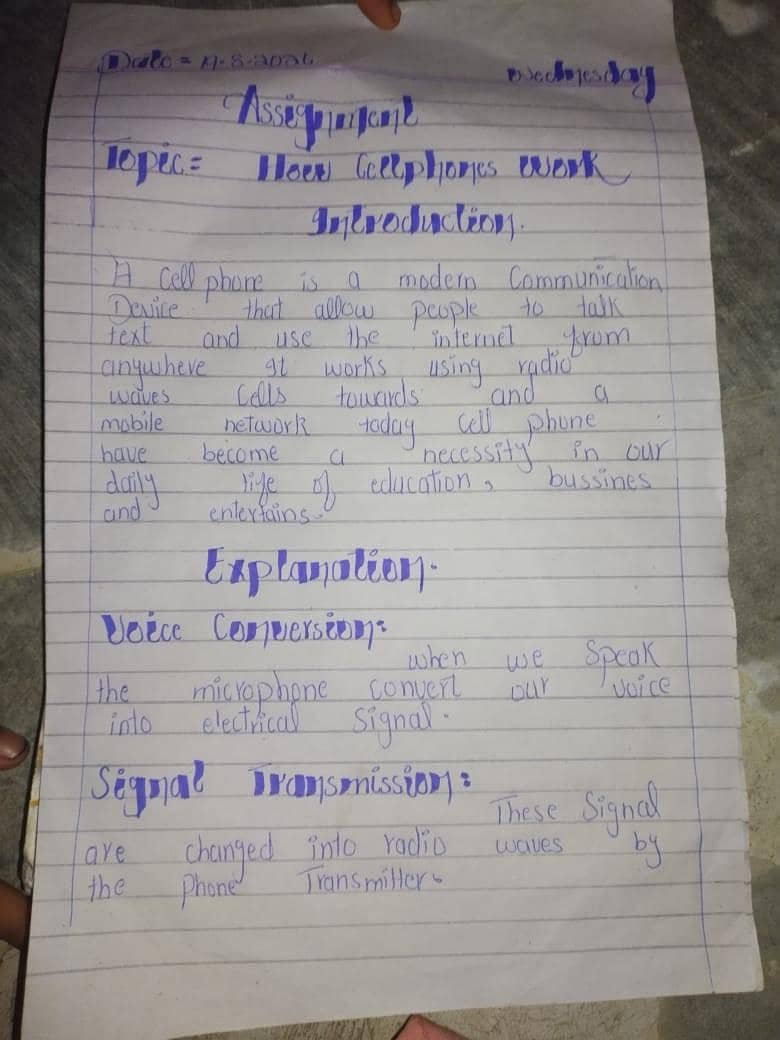 Date = 8-2026
Wednesday
Assignment
Topic = How Cellphones Work
Introduction.
A Cell phone is a modern Communication
Device that allow people to talk
text and use the internet from
anywhere It works using radio
waves Cells towards and a
mobile network today Cell phone
have become a necessity in our
daily life of education, bussines
and entertains.
Explanation.
Voice Conversion:
when we Speak
the microphone convert our voice
into electrical Signal.
Signal Transmission:
These Signal
are changed into radio waves by
the Phone Transmitter.